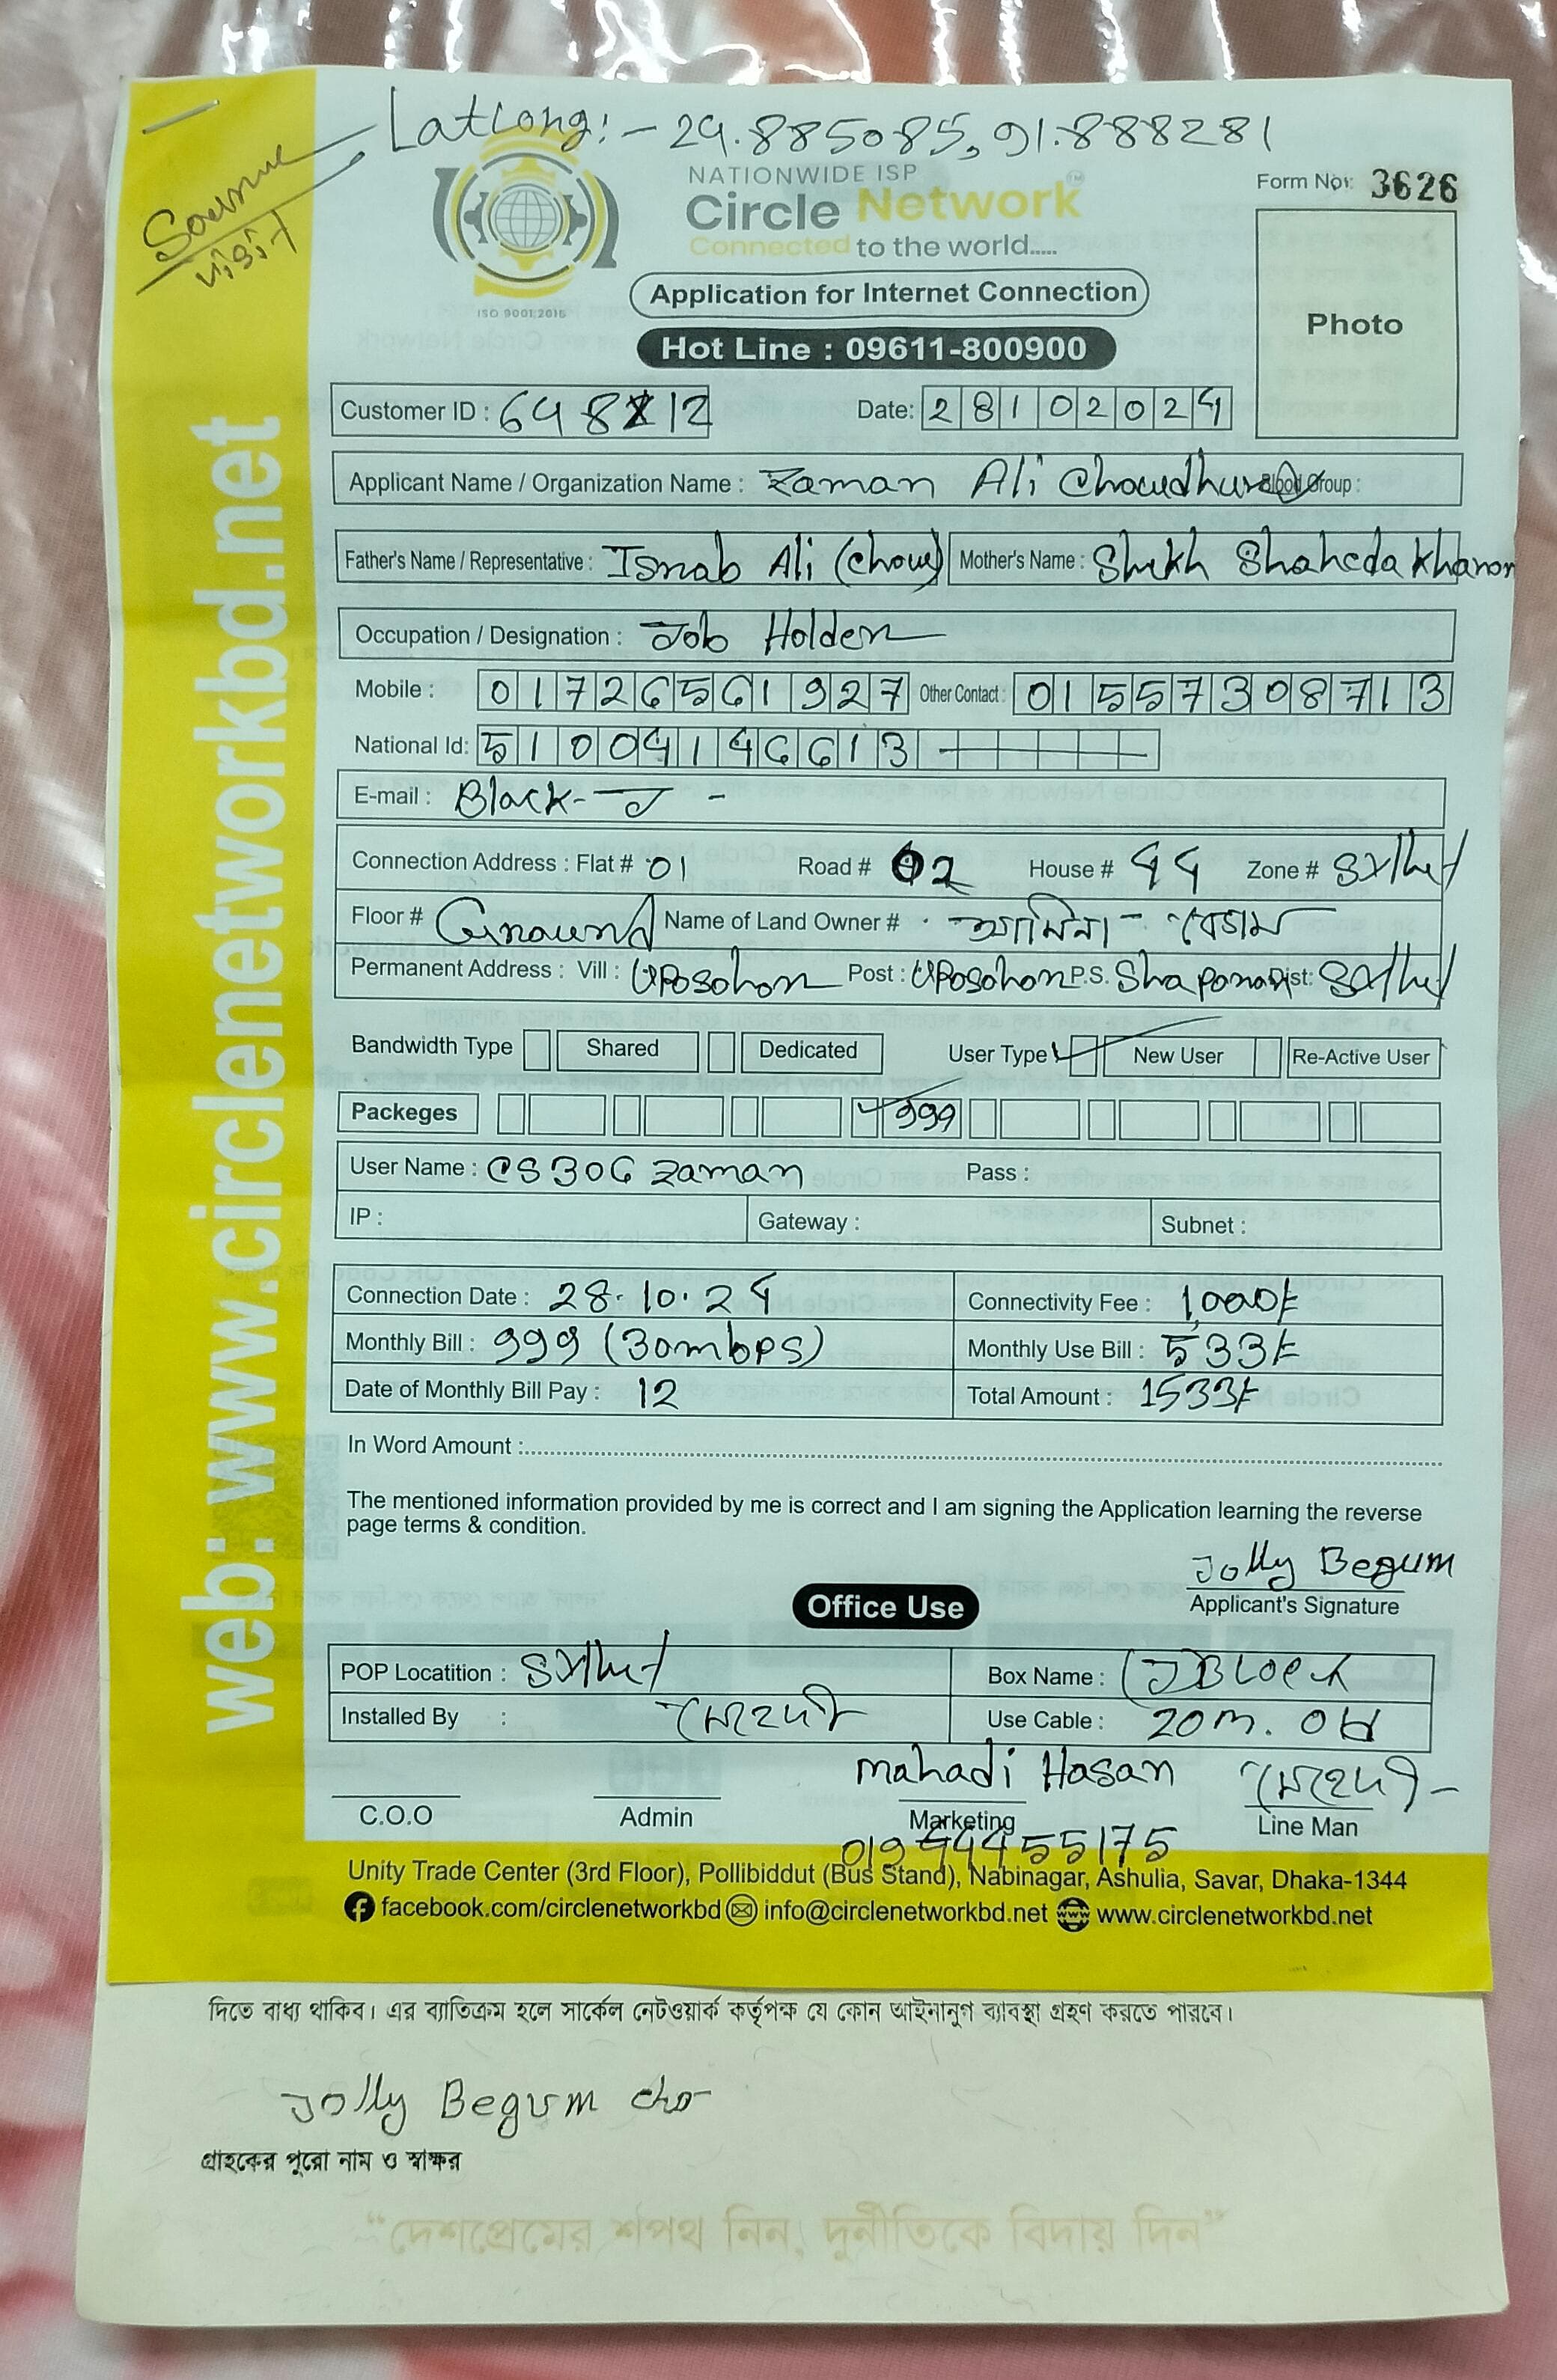 LatLong:- 24.885085, 91.888281
Source
ভিজিট
NATIONWIDE ISP
Circle Network™
Connected to the world.....
ISO 9001:2015
Form No: 3626
Photo
Application for Internet Connection
Hot Line : 09611-800900
Customer ID : 648 12 Date: 28102024
Applicant Name / Organization Name : Zaman Ali Choudhury Blood Group :
Father's Name / Representative : Ismab Ali (Chow) Mother's Name : Shekh Shaheda Khanom
Occupation / Designation : Job Holder
Mobile : 01726561927 Other Contact : 01557308713
National Id: 51004146613
E-mail : Black- J -
Connection Address : Flat # 01 Road # 02 House # 44 Zone # Sylhet
Floor # Ground Name of Land Owner # আমিনা - বেগম
Permanent Address : Vill : Uposohor Post : Uposohor P.S. Shaporan Dist: Sylhet
Bandwidth Type Shared Dedicated User Type New User Re-Active User
Packeges 999
User Name : CS306 Zaman Pass :
IP : Gateway : Subnet :
Connection Date : 28.10.24 Connectivity Fee : 1,000/=
Monthly Bill : 999 (30mbps) Monthly Use Bill : 533/=
Date of Monthly Bill Pay : 12 Total Amount : 1533/=
In Word Amount :
The mentioned information provided by me is correct and I am signing the Application learning the reverse
page terms & condition.
Jolly Begum
Applicant's Signature
Office Use
POP Locatition : Sylhet Box Name : (J BLOCK
Installed By : মেহেদী Use Cable : 20 m.
Mahadi Hasan মেহেদী
C.O.O Admin Marketing Line Man
01944455175
Unity Trade Center (3rd Floor), Pollibiddut (Bus Stand), Nabinagar, Ashulia, Savar, Dhaka-1344
facebook.com/circlenetworkbd info@circlenetworkbd.net www.circlenetworkbd.net
web: www.circlenetworkbd.net
দিতে বাধ্য থাকিব। এর ব্যাতিক্রম হলে সার্কেল নেটওয়ার্ক কর্তৃপক্ষ যে কোন আইনানুগ ব্যাবস্থা গ্রহণ করতে পারবে।
Jolly Begum Cho-
গ্রাহকের পুরো নাম ও স্বাক্ষর
“দেশপ্রেমের শপথ নিন, দুর্নীতিকে বিদায় দিন”